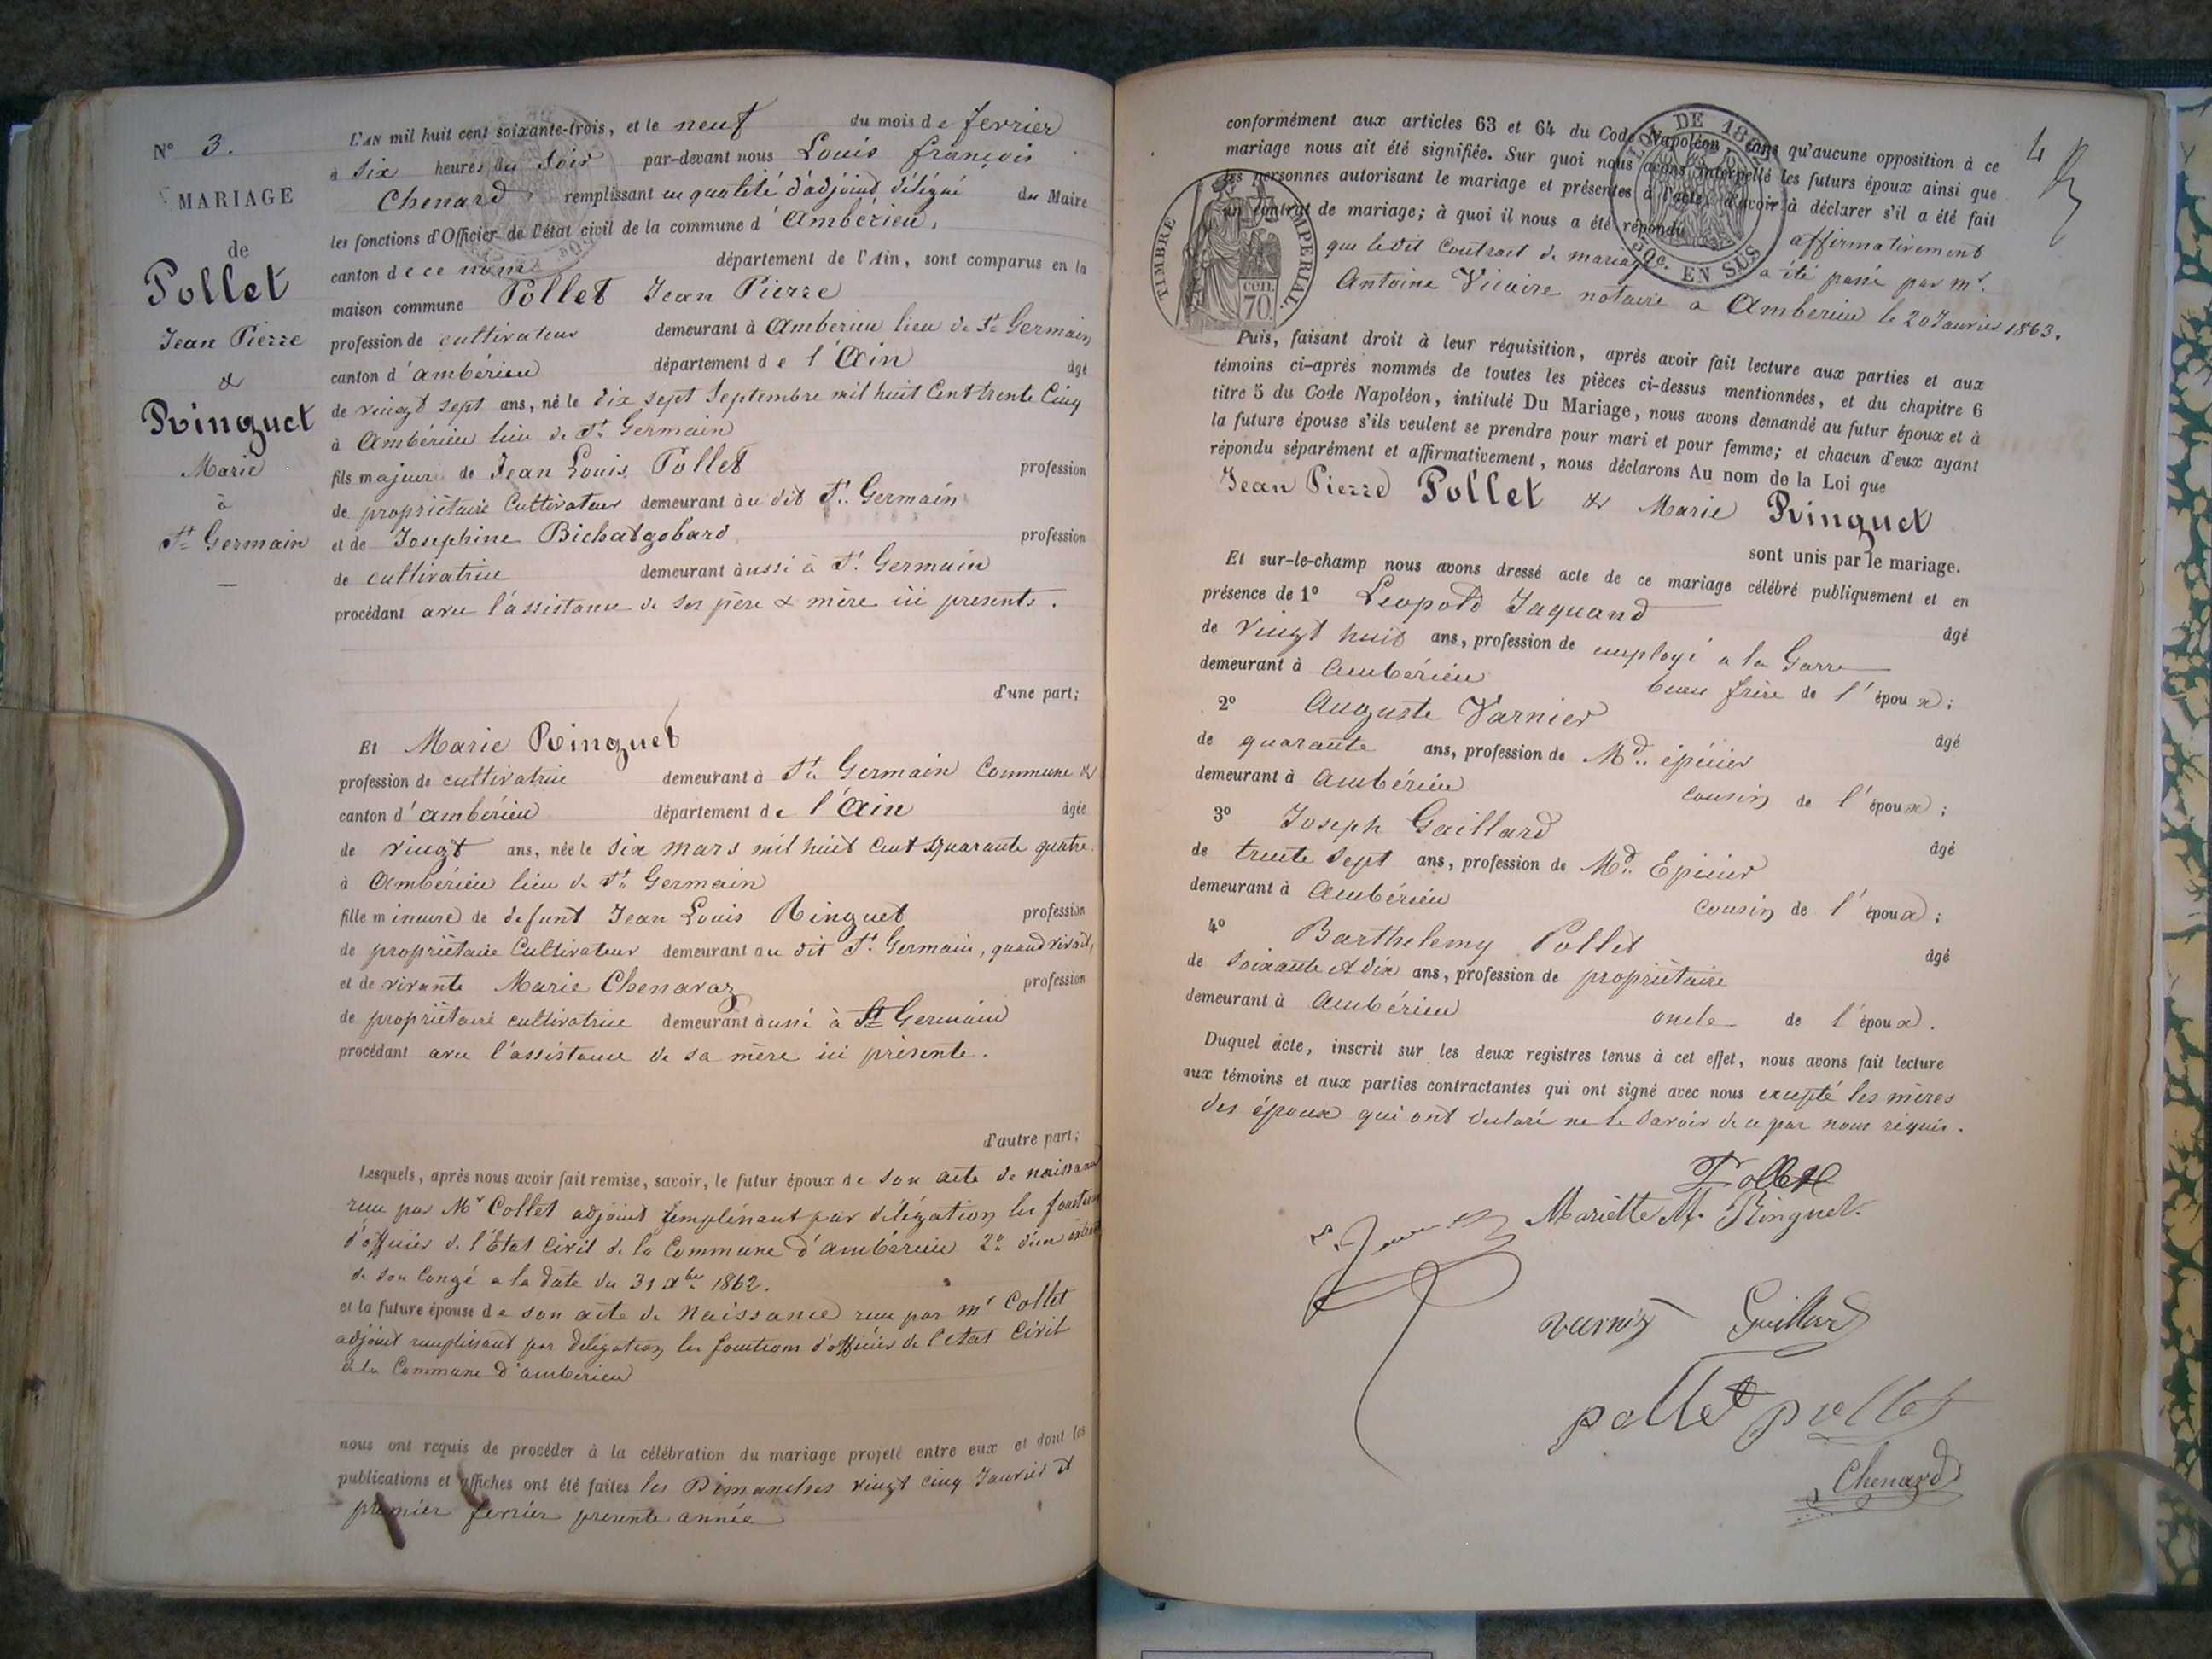 N° 3.
MARIAGE
de
Pollet
Jean Pierre
&
Ringuet
Marie
à
St Germain
L'AN mil huit cent soixante-trois, et le neuf du mois de fevrier
à six heures du soir par-devant nous Louis françois
Chenard remplissant en qualité d'adjoind délégué du Maire
les fonctions d'Officier de l'état civil de la commune d'Ambérieu,
canton de ce nom département de l'Ain, sont comparus en la
maison commune Pollet Jean Pierre
profession de cultivateur demeurant à Amberieu lieu de St Germain
canton d'ambérieu département de l'Ain âgé
de vingt sept ans, né le dix sept Septembre mil huit Cent trente Cinq
à Ambérieu lieu de St Germain
fils majeur de Jean Louis Pollet profession
de propriétaire Cultivateur demeurant au dit St Germain
et de Josephine Bichatgobard profession
de cultivatrice demeurant aussi à St Germain
procédant avec l'assistance de ses père & mère ici presents.
d'une part;
Et Marie Ringuet
profession de cultivatrice demeurant à St Germain Commune &
canton d'ambérieu département de l'Ain âgée
de vingt ans, née le six mars mil huit cent quarante quatre
à Ambérieu lieu de St Germain
fille mineure de defunt Jean Louis Ringuet profession
de propriétaire Cultivateur demeurant au dit St Germain, quand vivait,
et de vivante Marie Chenavaz profession
de propriétaire cultivatrice demeurant aussi à St Germain
procédant avec l'assistance de sa mère ici présente.
d'autre part;
Lesquels, après nous avoir fait remise, savoir, le futur époux de son acte de naissance
recu par Mr Collet adjoind remplissant par délégation les fonctions
d'officier de l'Etat Civil de la Commune d'ambérieu 2° d'un extrait
de son Congé a la date du 31 xbre 1862.
et la future épouse de son acte de Naissance recu par mr Collet
adjoind remplissant par délégation les fonctions d'officier de l'etat Civil
de la Commune d'amberieu
nous ont requis de procéder à la célébration du mariage projeté entre eux et dont les
publications et affiches ont été faites les Dimanches vingt cinq Janvier et
premier fevrier presente année
4
conformément aux articles 63 et 64 du Code Napoléon, sans qu'aucune opposition à ce
mariage nous ait été signifiée. Sur quoi nous avons interpellé les futurs époux ainsi que
les personnes autorisant le mariage et présentes à l'acte, d'avoir à déclarer s'il a été fait
un contrat de mariage; à quoi il nous a été répondu affirmativement
que ledit Contract de mariage a été passé par mr.
Antoine Vicaire notaire a Amberieu le 20 Janvier 1863.
TIMBRE IMPERIAL.
cen.
70.
LOI DE 18
50c. EN SUS
Puis, faisant droit à leur réquisition, après avoir fait lecture aux parties et aux
témoins ci-après nommés de toutes les pièces ci-dessus mentionnées, et du chapitre 6
titre 5 du Code Napoléon, intitulé Du Mariage, nous avons demandé au futur époux et à
la future épouse s'ils veulent se prendre pour mari et pour femme; et chacun d'eux ayant
répondu séparément et affirmativement, nous déclarons Au nom de la Loi que
Jean Pierre Pollet & Marie Ringuet
sont unis par le mariage.
Et sur-le-champ nous avons dressé acte de ce mariage célébré publiquement et en
présence de 1° Leopold Jaquand âgé
de vingt huit ans, profession de employé a la Garre
demeurant à Ambérieu beau frère de l'époux;
2° Auguste Varnier âgé
de quarante ans, profession de Md. épicier
demeurant à Ambérieu Cousin de l'époux;
3° Joseph Gaillard âgé
de trente sept ans, profession de Md. Epicier
demeurant à Ambérieu Cousin de l'époux;
4° Barthelemy Pollet âgé
de soixante et dix ans, profession de propriétaire
demeurant à Ambérieu oncle de l'époux.
Duquel acte, inscrit sur les deux registres tenus à cet effet, nous avons fait lecture
aux témoins et aux parties contractantes qui ont signé avec nous excepté les mères
des époux qui ont declaré ne le savoir de ce par nous requis.
Pollet
Mariette M. Ringuet.
varnier Gaillard
pollet pollet
Chenard